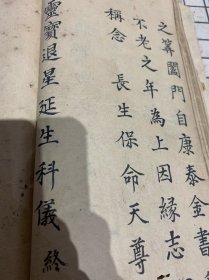 之筭闔門自康泰金書
不老之年為上因緣志
稱念　長生保命天尊
靈寶退星延生科儀終